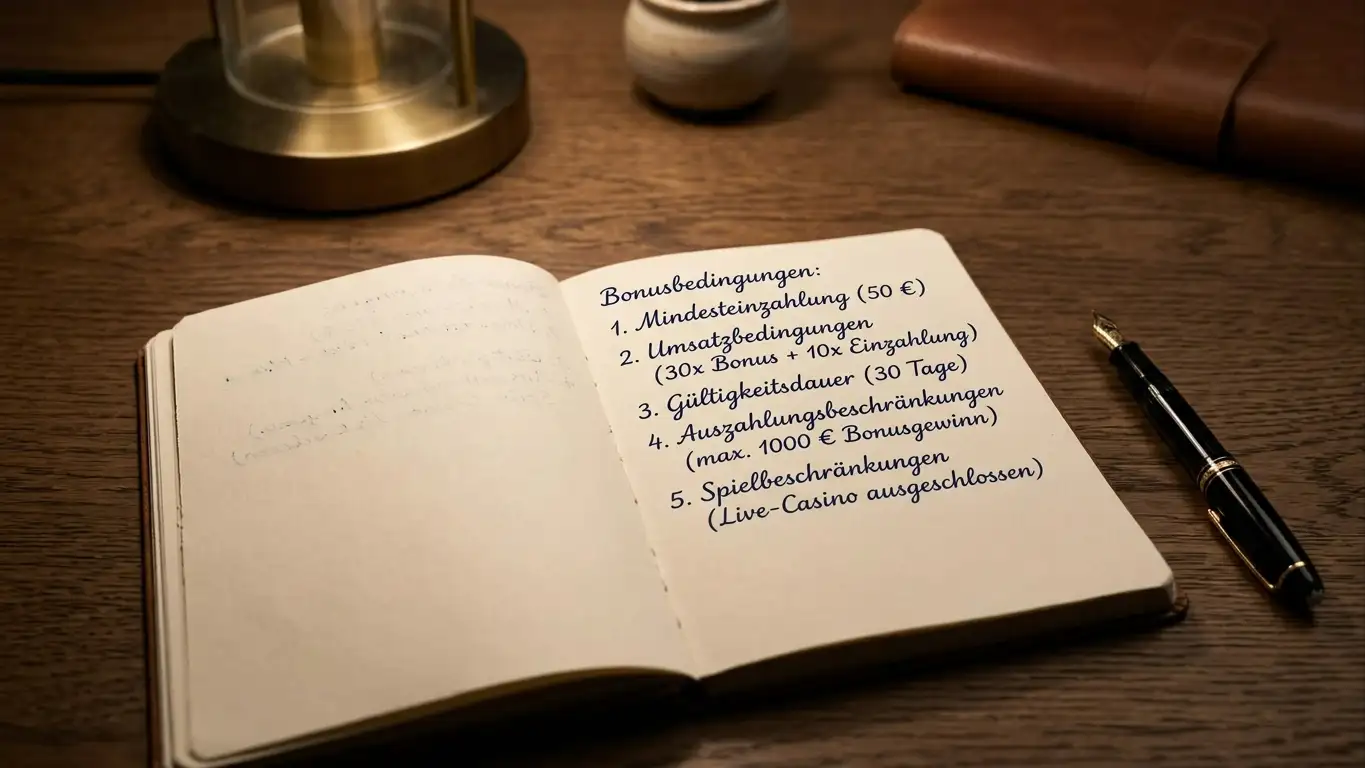 Bonusbedingungen:
1. Mindesteinzahlung (50 €)
2. Umsatzbedingungen
(30x Bonus + 10x Einzahlung)
3. Gültigkeitsdauer (30 Tage)
4. Auszahlungsbeschränkungen
(max. 1000 € Bonusgewinn)
5. Spielbeschränkungen
(Live-Casino ausgeschlossen)